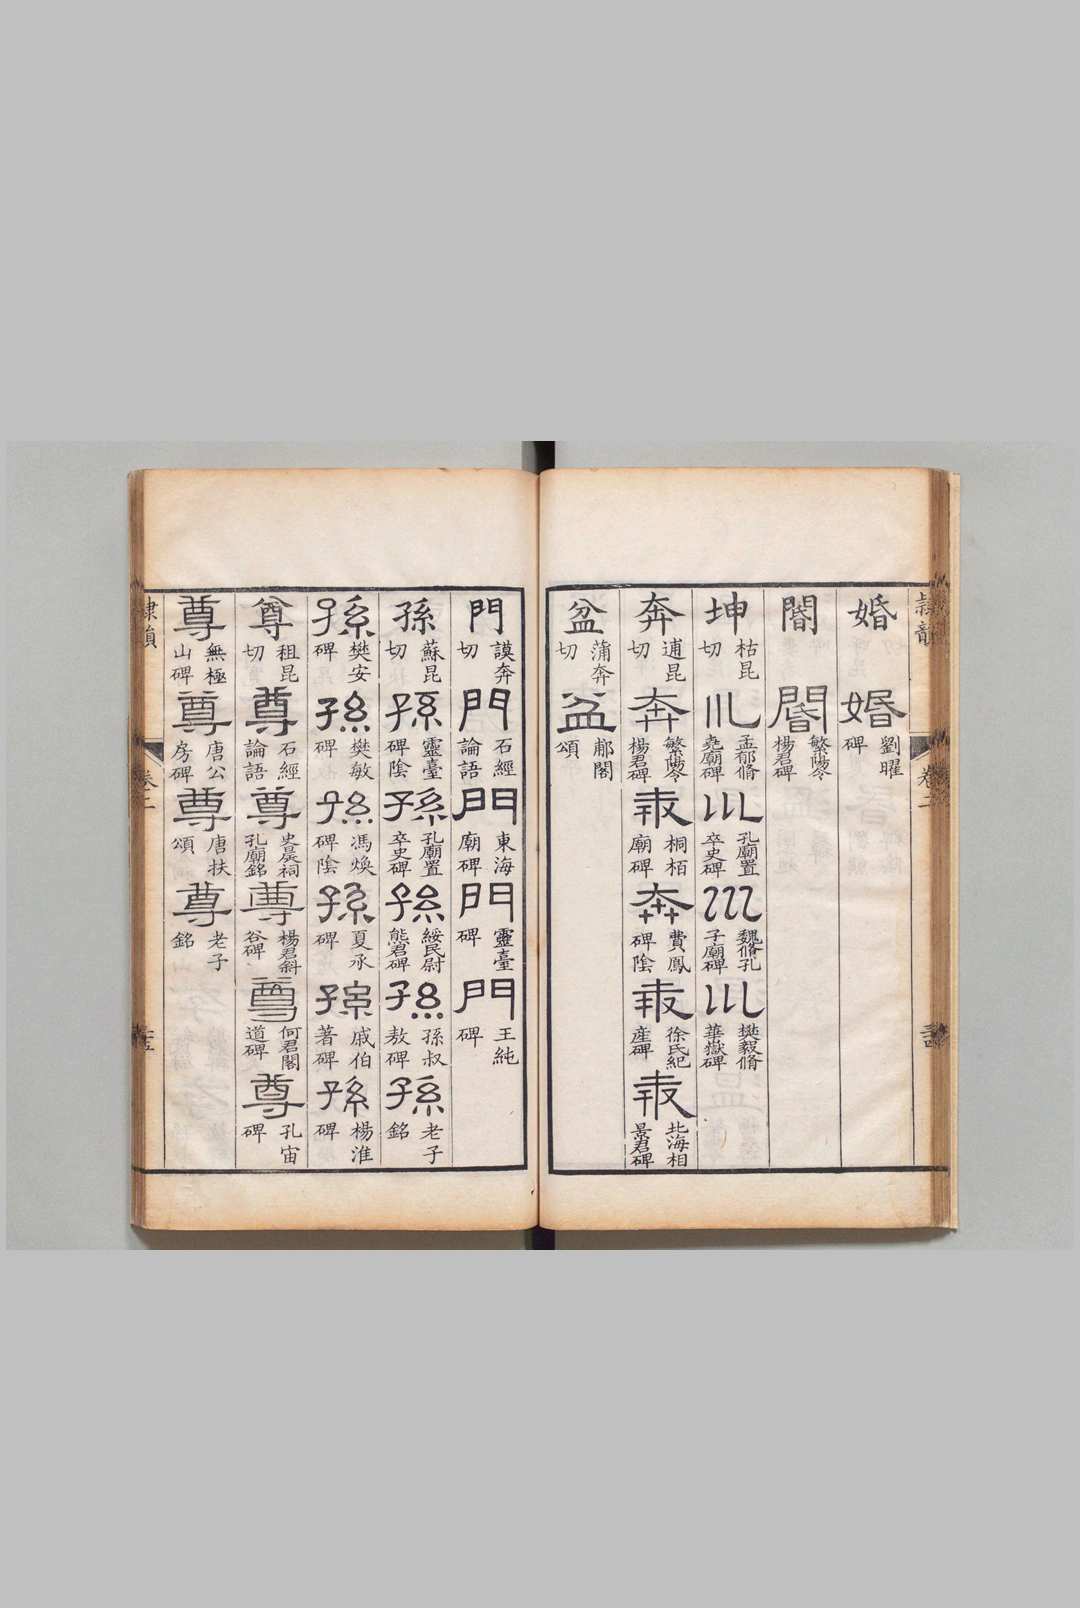 婚 婚 劉曜碑
閽 閽 繁陽令楊君碑
坤 枯昆切 巛 孟郁脩堯廟碑 巛 孔廟置卒史碑 巛 魏脩孔子廟碑 巛 樊毅脩華嶽碑
奔 逋昆切 奔 繁陽令楊君碑 奔 桐栢廟碑 奔 費鳳碑陰 奔 徐氏紀産碑 奔 北海相景君碑
盆 蒲奔切 盆 郙閣頌
門 謨奔切 門 石經論語 門 東海廟碑 門 靈臺碑 門 王純碑
孫 蘇昆切 孫 靈臺碑陰 孫 孔廟置卒史碑 孫 綏民尉熊君碑 孫 孫叔敖碑 孫 老子銘
孫 樊安碑 孫 樊敏碑 孫 馮煥碑陰 孫 夏承碑 孫 戚伯著碑 孫 楊淮碑
尊 祖昆切 尊 石經論語 尊 史晨祠孔廟銘 尊 楊君斜谷碑 尊 何君閣道碑 尊 孔宙碑
尊 無極山碑 尊 唐公房碑 尊 唐扶頌 尊 老子銘
卷二